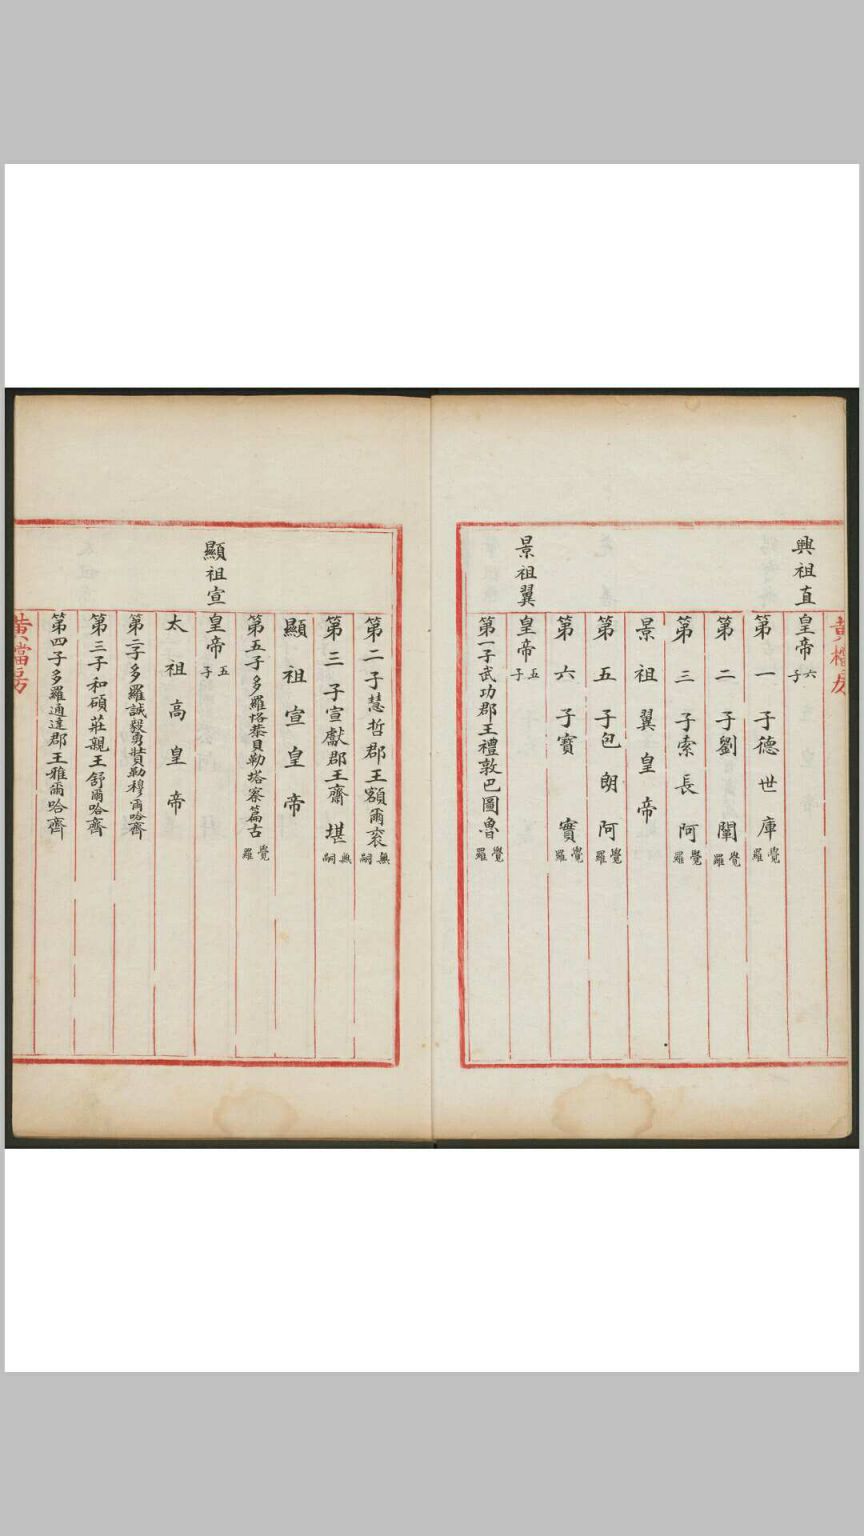 黃檔房
興祖直
皇帝六子
第一子德世庫覺羅
第二子劉闡覺羅
第三子索長阿覺羅
景祖翼皇帝
第五子包朗阿覺羅
第六子寶實覺羅
景祖翼
皇帝五子
第一子武功郡王禮敦巴圖魯覺羅
第二子慧哲郡王額爾袞無嗣
第三子宣獻郡王齋堪無嗣
顯祖宣皇帝
第五子多羅恪恭貝勒塔察篇古覺羅
顯祖宣
皇帝五子
太祖高皇帝
第二子多羅誠毅勇壯貝勒穆爾哈齊
第三子和碩莊親王舒爾哈齊
第四子多羅通達郡王雅爾哈齊
黃檔房